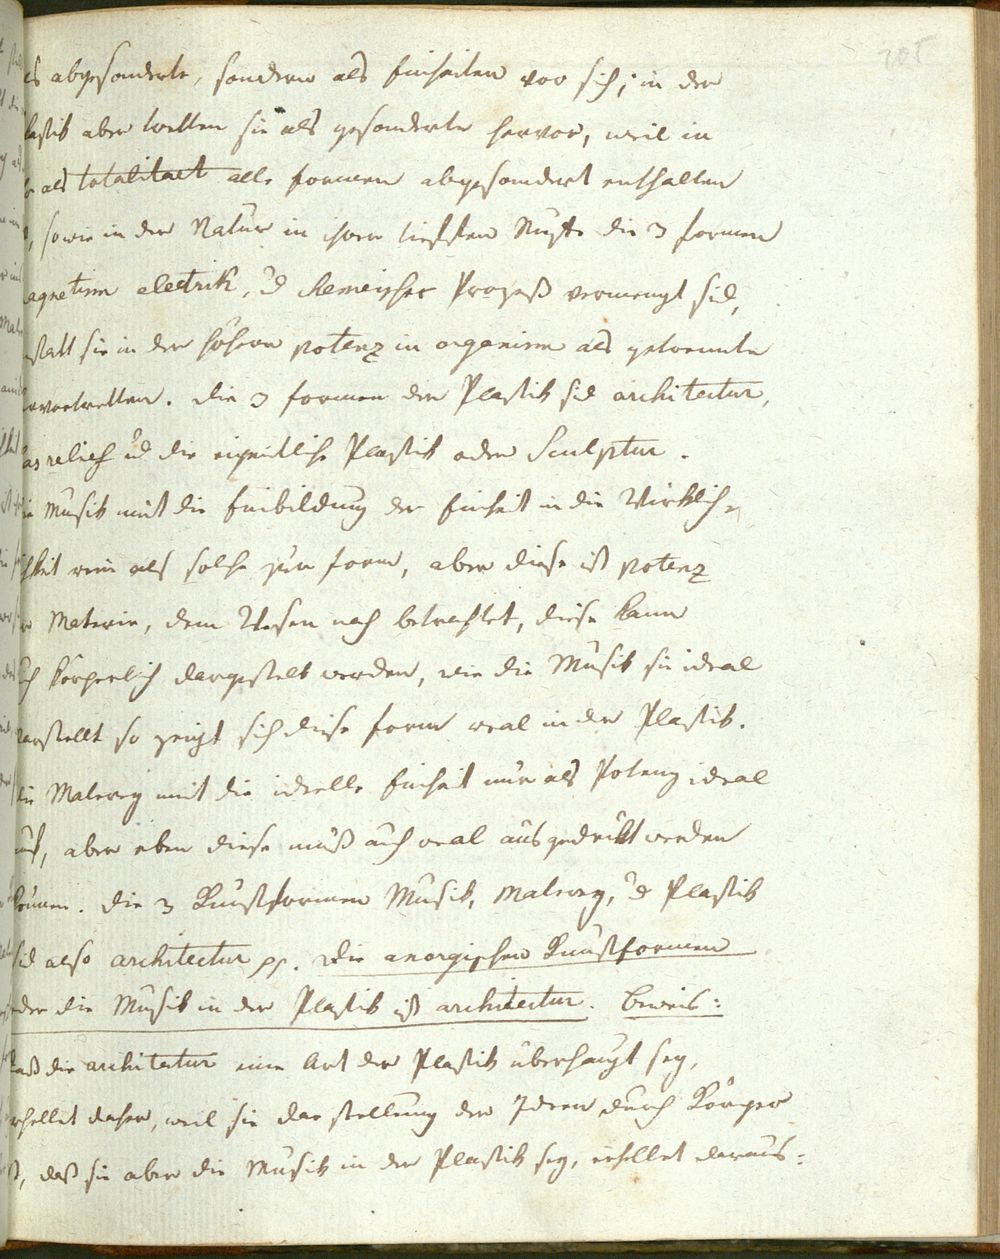 205
als abgesonderte, sondern als Einheiten vor sich; in der
Plastik aber tretten sie als gesonderte hervor, weil in
ihr als totalitaet alle formen abgesondert enthalten
, sowie in der Natur in ihrer tiefsten Stuffe die 3 formen
magnetism electrik, ud chemischer Prozeß vermengt sid,
anstatt sie in der höhern potenz in organism als getrennte
hervortretten. die 3 formen der Plastik sid architectur,
basrelief ud die eigentliche Plastik oder Sculptur.
die Musik nimt die Einbildung der Einheit in die Wirklich-
chkeit rein als solche zur form, aber diese ist potenz
der Materie, dem Wesen nach betrachtet, diese kann
auch körperlich dargestelt werden, wie die Musik sie ideal
darstellt so zeigt sich diese form real in der Plastik.
die Malerey nimt die ideelle Einheit nur als Potenz ideal
auf, aber eben diese muß auch real ausgedrükt werden
können. die 3 Kunstformen Musik, Malerey, ud Plastik
sid also architectur pp. die anorgischen Kunstformen
oder die Musik in der Plastik ist architectur. Beweis:
daß die architectur eine Art der Plastik überhaupt sey,
erhellet daher, weil sie darstellung der Ideen durch Körper
ist, daß sie aber die Musik in der Plastik sey, erhellet daraus: